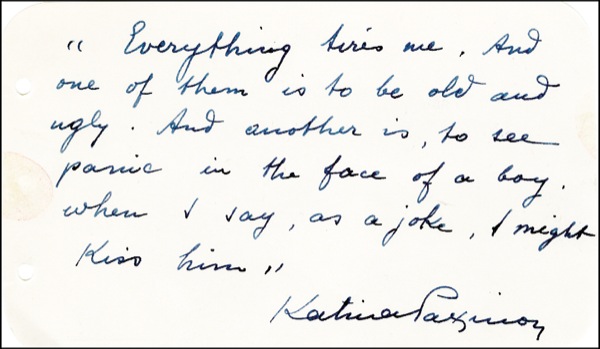 „ Everything tires me. And
one of them is to be old and
ugly. And another is, to see
panic in the face of a boy.
when I say, as a joke, I might
Kiss him „
Katina Paxinou